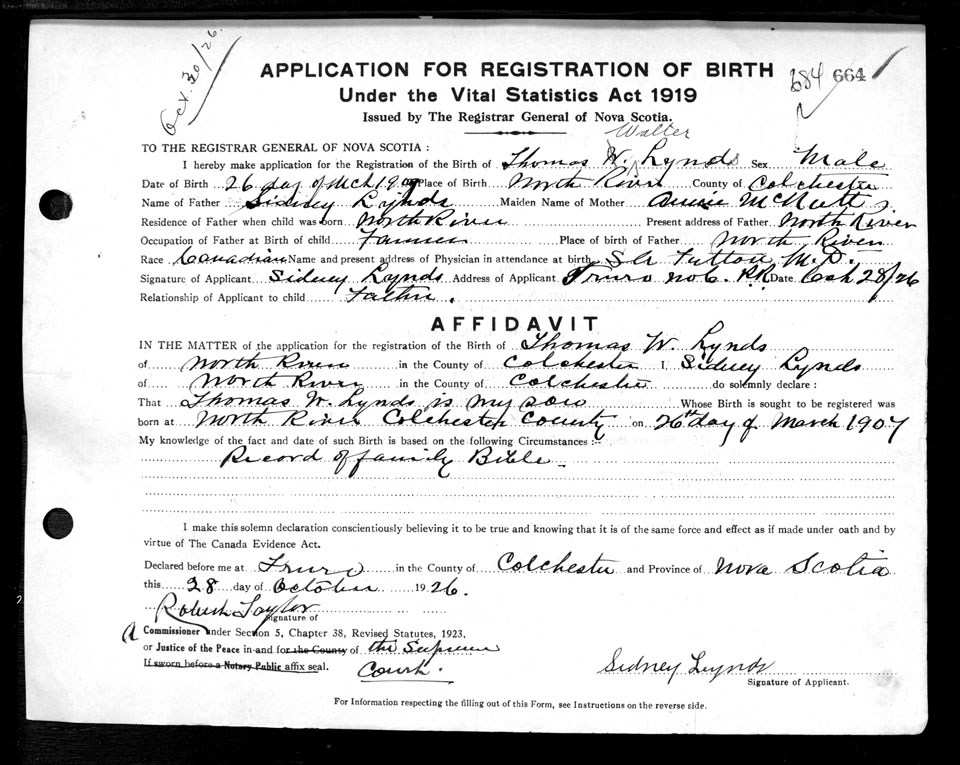 Oct. 30/26.
APPLICATION FOR REGISTRATION OF BIRTH
684 664
Under the Vital Statistics Act 1919
Issued by The Registrar General of Nova Scotia.
Walter
TO THE REGISTRAR GENERAL OF NOVA SCOTIA :
I hereby make application for the Registration of the Birth of Thomas W. Lynds Sex Male
Date of Birth 26 day of Mch 1907 Place of Birth North River County of Colchester
Name of Father Sidney Lynds Maiden Name of Mother Annie McNutt
Residence of Father when child was born North River Present address of Father North River
Occupation of Father at Birth of child Farmer Place of birth of Father North River
Race Canadian Name and present address of Physician in attendance at birth M.D.
Signature of Applicant Sidney Lynds Address of Applicant Truro no 6. RR Date Oct 28/26
Relationship of Applicant to child Father.
AFFIDAVIT
IN THE MATTER of the application for the registration of the Birth of Thomas W. Lynds
of North River in the County of Colchester I, Sidney Lynds
of North River in the County of Colchester do solemnly declare :
That Thomas W. Lynds is my son Whose Birth is sought to be registered was
born at North River Colchester County on 26th day of March 1907
My knowledge of the fact and date of such Birth is based on the following Circumstances :-
Record of family Bible
I make this solemn declaration conscientiously believing it to be true and knowing that it is of the same force and effect as if made under oath and by
virtue of The Canada Evidence Act.
Declared before me at Truro in the County of Colchester and Province of Nova Scotia
this 28 day of October 1926.
Robert Taylor
Signature of
A Commissioner under Section 5, Chapter 38, Revised Statutes, 1923,
or Justice of the Peace in and for the County of the Supreme
If sworn before a Notary Public affix seal. Court.
Sidney Lynds
Signature of Applicant.
For Information respecting the filling out of this Form, see Instructions on the reverse side.